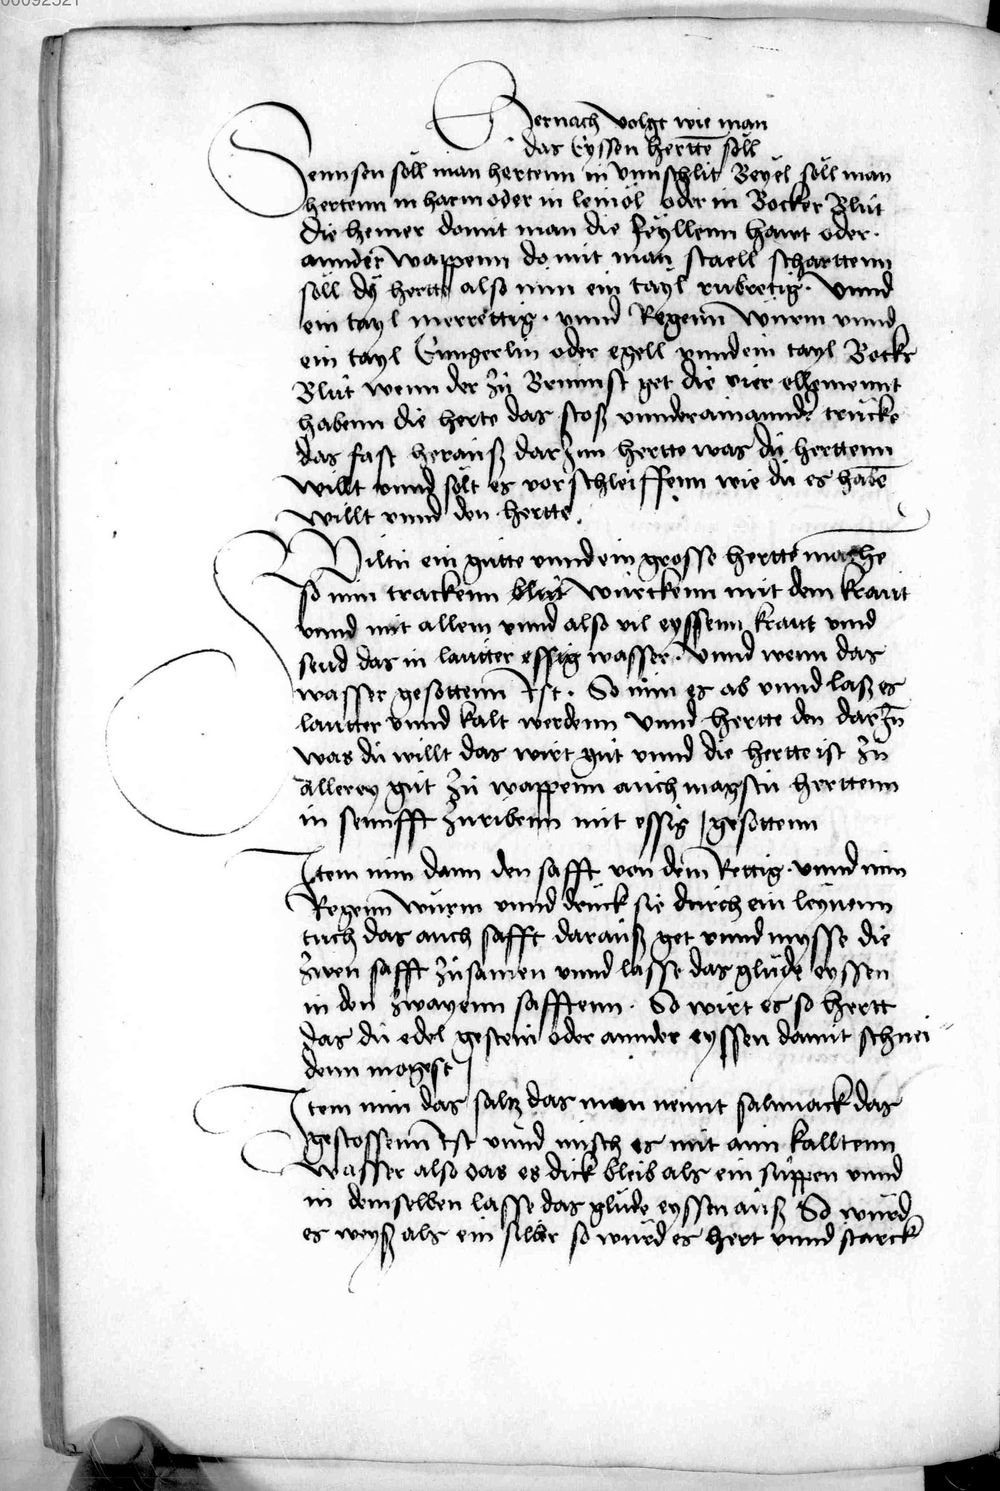 00092521
Hernach volgt wie man
das Eyssen herttē soll
Sennsen soll man hertenn in Vnnschlit Beyel soll man
hertenn in harm oder in leinöl oder in Bocker Blut
die hemer domit man die feyllenn hawt oder
annder Wappenn do mit man staell scharttenn
soll dy hertt also nim ein tayl rubretig. Vnnd
ein tayl merrettig. vnnd Regenn Wurm vnnd
ein tayl Enngerlin oder egell vnnd ein tayl Bocks
Blut wenn der zu Brunnst get die vier ellemennt
habenn die herte das stoß vnnderainannd trucke
das fast herauß dar Inn hertte was du herttenn
willt vnnd sollt es vor schleiffenn wie du es habē
willt vnnd den hertte.
Wiltu ein gutte vnnd ein grosse hertte mache
so nim trackenn blut Wurtkenn mit dem kraut
vnnd mit allem vnnd also vil eyssenn kraut vnd
send das in lautter essig wasser. Vnnd wenn das
wasser gesottenn Ist. So nim es ab vnnd laß es
lautter vnnd kalt werdenn Vnnd hertte den dar In
was du willt das wirt gut vnnd die hertte ist zu
allerey gut zu wappenn auch magstu herttenn
in sennfft zuribenn mit essig gesottenn
Item nim dann den safft von dem Rettig. vnnd nim
Regenn Wurm vnnd druck sie durch ein leynenn
tuch das auch safft darauß get vnnd mysse die
zwen safft zusamen vnnd lasse das glude eyssen
in den zwayenn safftenn. So wirt es so hertt
das du edel gestein oder annder eyssen damit schnei
denn mogest
Item nim das saltz das man nennt salmiack das
gestossenn Ist vnnd misch es mit ainn kalltenn
wasser also das es dick bleib als ein suppen vnnd
in demselben lasse das glude eyssen auß So wurd
es weyß als ein silber so wurd es hert vnnd starck